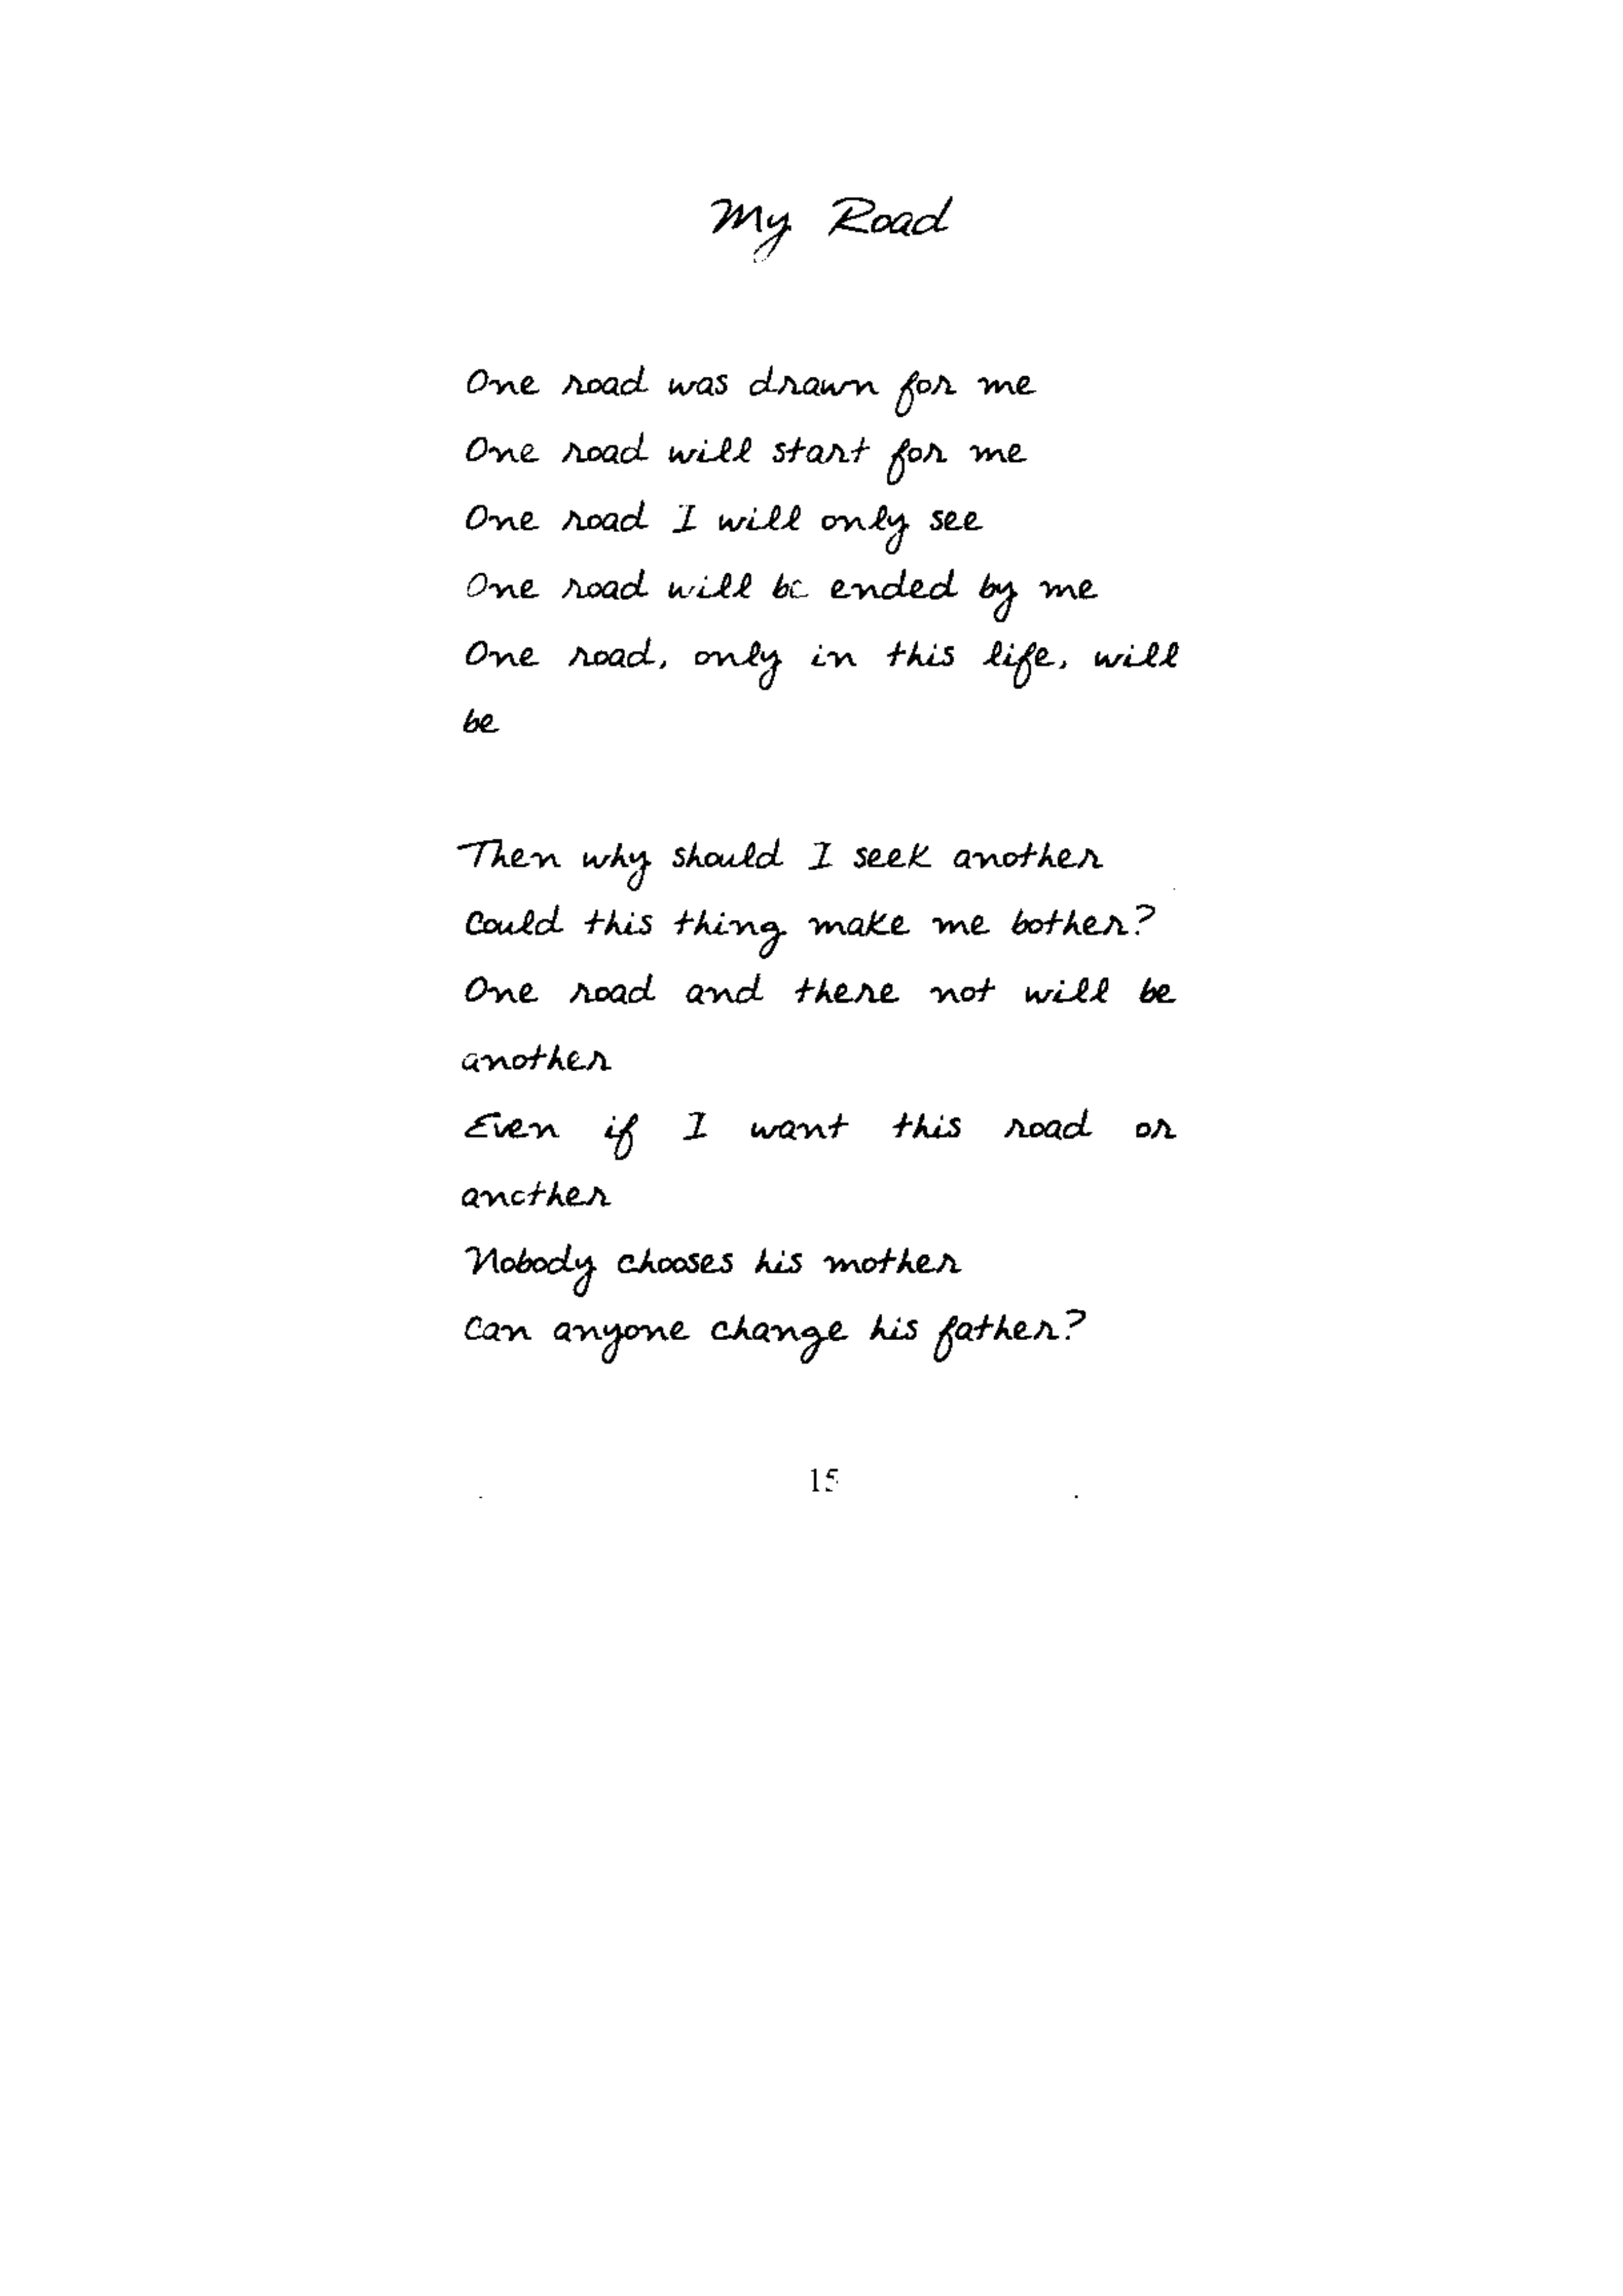 My Road
One road was drawn for me
One road will start for me
One road I will only see
One road will be ended by me
One road, only in this life, will
be
Then why should I seek another
Could this thing make me bother?
One road and there not will be
another
Even if I want this road or
another
Nobody chooses his mother
Can anyone change his father?
15